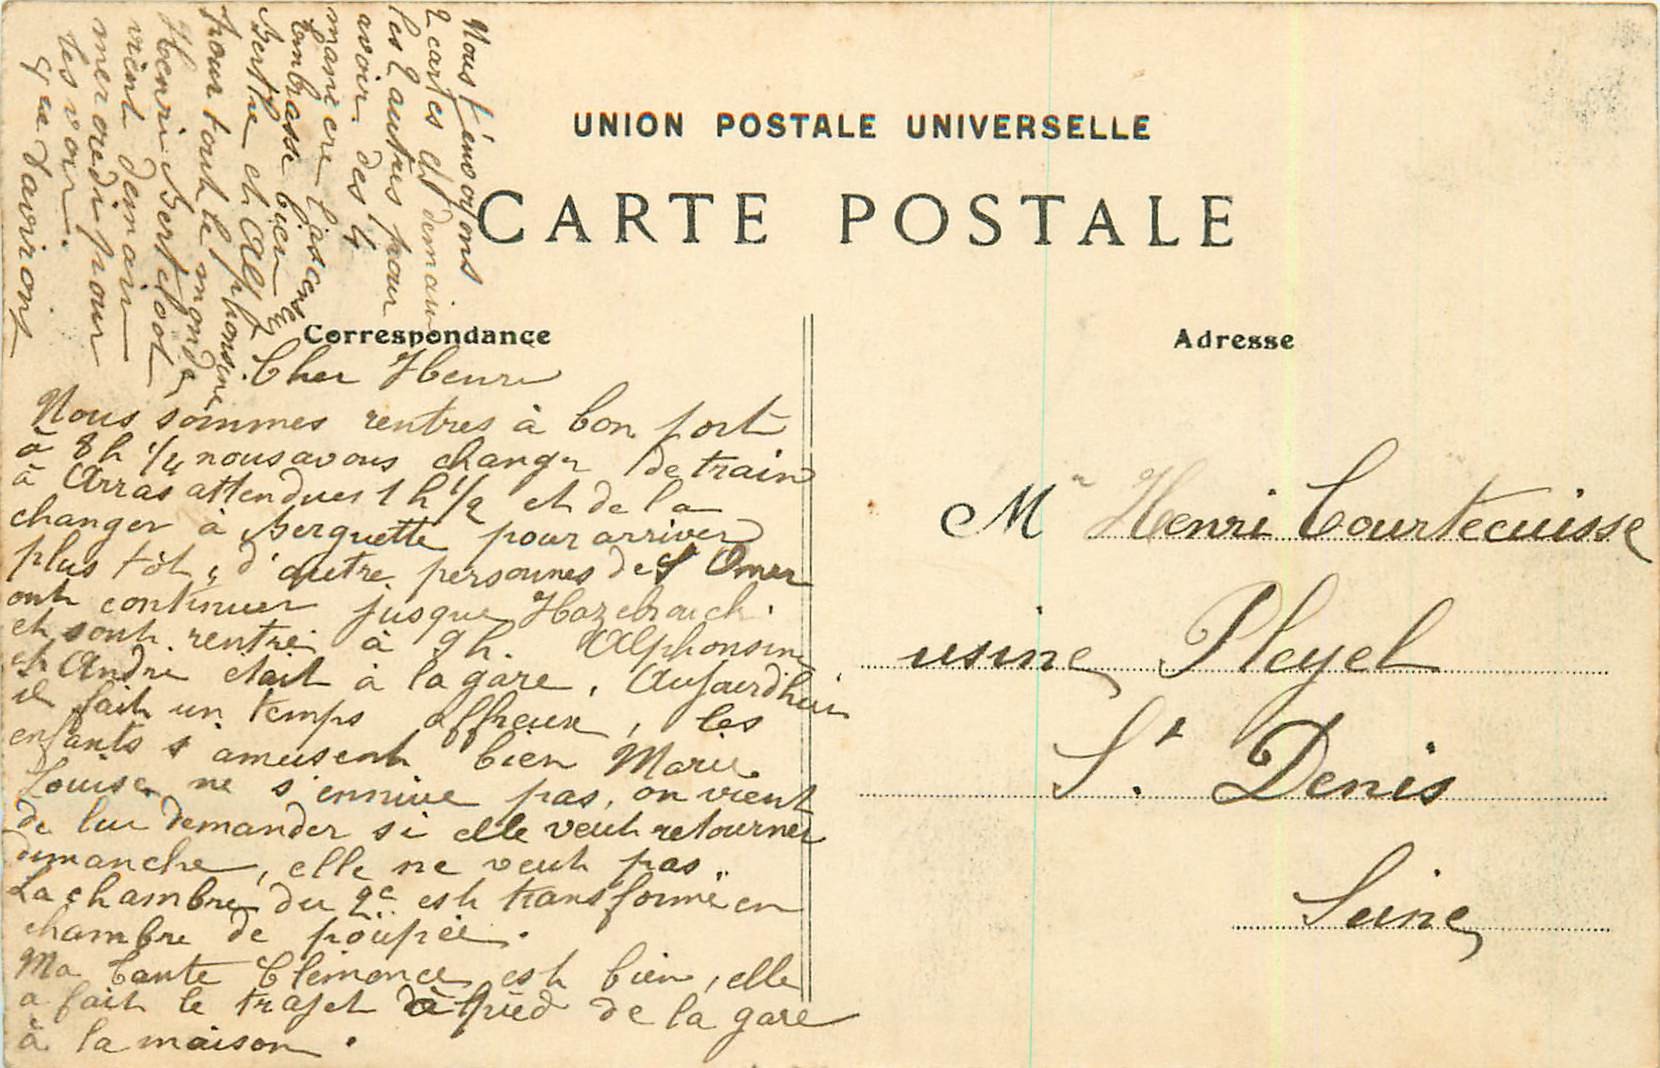 UNION POSTALE UNIVERSELLE
CARTE POSTALE
Correspondance
Adresse
Cher Henri
Nous sommes rentres à bon port
à 8h 1/4 nous avons changer de train
à Arras attendues 1h 1/2 et de la
changer à Berguette pour arriver
plus tôt, d'autre personnes de St Omer
ont continuer jusque Hazebrouck.
et sont rentré à 9h. Alphonsine
et André etait à la gare, Aujourdhui
il fait un temps affreux, les
enfants s'amusent bien Marie
Louise ne s'ennuie pas, on vient
de lui demander si elle veut retourner
dimanche, elle ne veut pas
La chambre du 2e est transformé en
chambre de poupée.
Ma tante Clémence est bien, elle
a fait le trajet à pied de la gare
à la maison.
Nous t'envoyons
2 cartes et demain
les 2 autres pour
avoir des 4
maniere
t'embrasse bien
Berthe et Alphonsine
pour tout le monde
Henri Berteloot
vient demain
mercredi pour
les voir.
que d'avirons
Mr Henri Courtecuisse
usine Pleyel
St. Denis
Seine